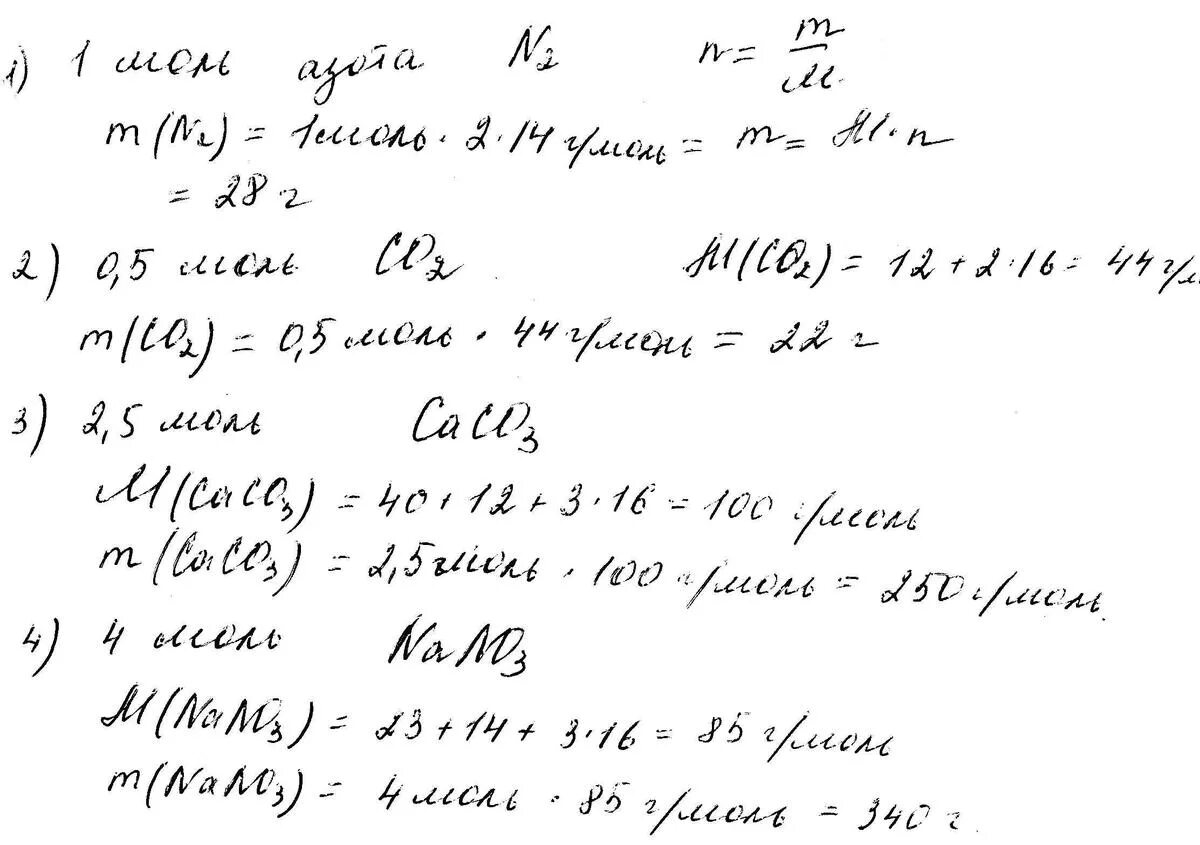 1) 1 моль азота N₂ n = m/M
m(N₂) = 1 моль · 2 · 14 г/моль = m = M · n
= 28 г
2) 0,5 моль CO₂ M(CO₂) = 12 + 2 · 16 = 44 г/м
m(CO₂) = 0,5 моль · 44 г/моль = 22 г
3) 2,5 моль CaCO₃
M(CaCO₃) = 40 + 12 + 3 · 16 = 100 г/моль
m(CaCO₃) = 2,5 моль · 100 г/моль = 250 г/моль.
4) 4 моль NaNO₃
M(NaNO₃) = 23 + 14 + 3 · 16 = 85 г/моль
m(NaNO₃) = 4 моль · 85 г/моль = 340 г.